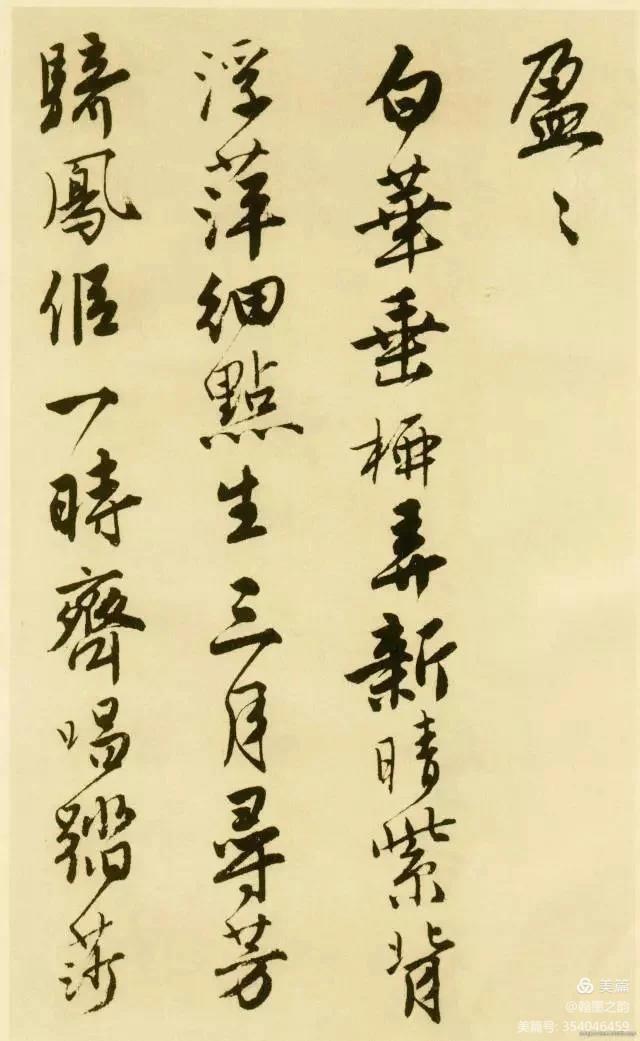 盈〻
白華垂弄新晴紫背
浮萍細點生三月尋芳
騎鳳侶一時齊唱踏莎
美篇
@翰墨之韵
美篇号: 354046459